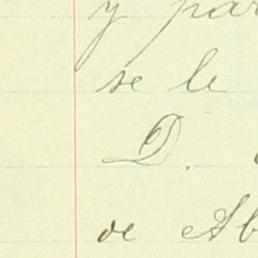 y par
se le
D.
de Ab